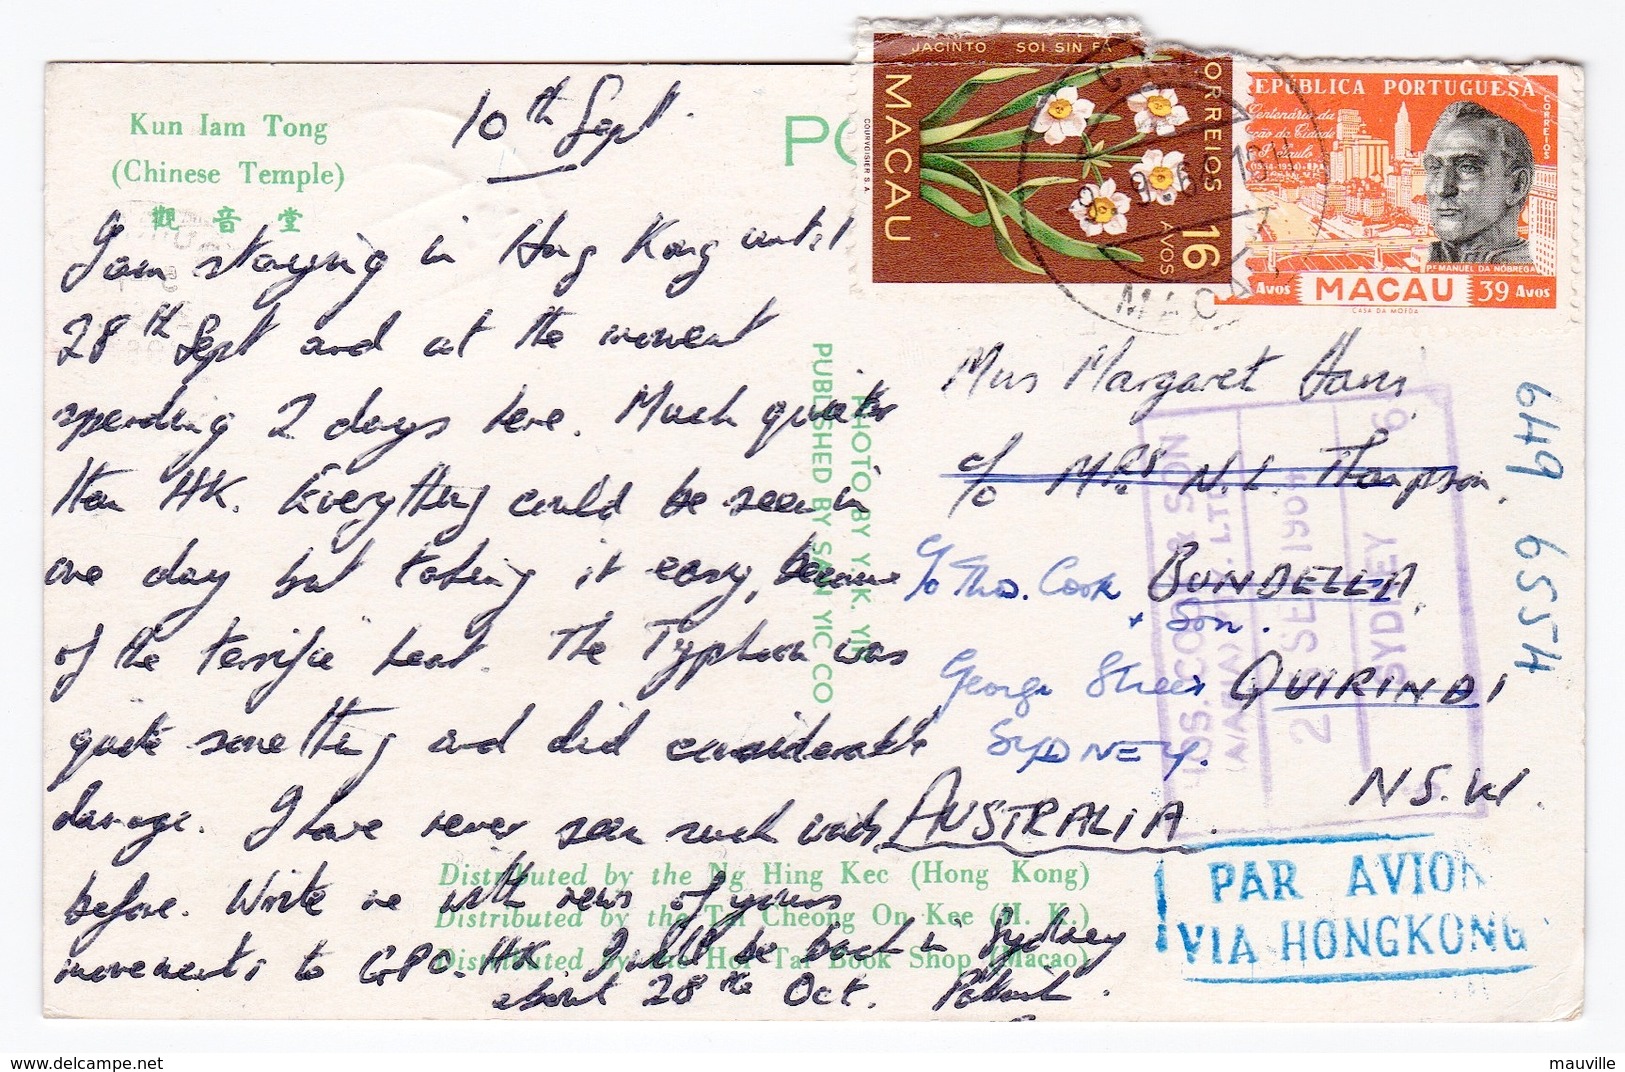 Kun Iam Tong
(Chinese Temple)
觀音堂
10th Sept.
I am staying in Hong Kong until
28th Sept and at the moment
spending 2 days here. Much quieter
than HK. Everything could be seen in
one day but taking it easy, because
of the terrific heat. The Typhoon was
quite something and did considerable
damage. I have never seen such winds
before. Write me with news of yours
movements to GPO. HK. I will be back in Sydney
about 28th Oct. Patrick.
PO
PUBLISHED BY SAN YIC CO
PHOTO BY Y.K.
Distributed by the Ng Hing Kec (Hong Kong)
Distributed by the Tai Cheong On Kee (H. K.)
Distributed by the Hoi Tat Book Shop (Macao)
JACINTO SOI SIN FA
MACAU
CORREIOS
16 AVOS
COURVOISIER S.A.
REPÚBLICA PORTUGUESA
CORREIOS
Centenário da
Cidade
S. Paulo
Pe MANUEL DA NÓBREGA
Avos MACAU 39 Avos
CASA DA MOEDA
MACAU
Miss Margaret
c/o Mrs N. L. Thompson,
c/o Thos. Cook BUNDELLA
+ Son.
George Street QUIRINDI
SYDNEY.
N.S.W.
AUSTRALIA.
619 6554
THOS. COOK & SON
SYDNEY
PAR AVION
VIA HONGKONG
mauville